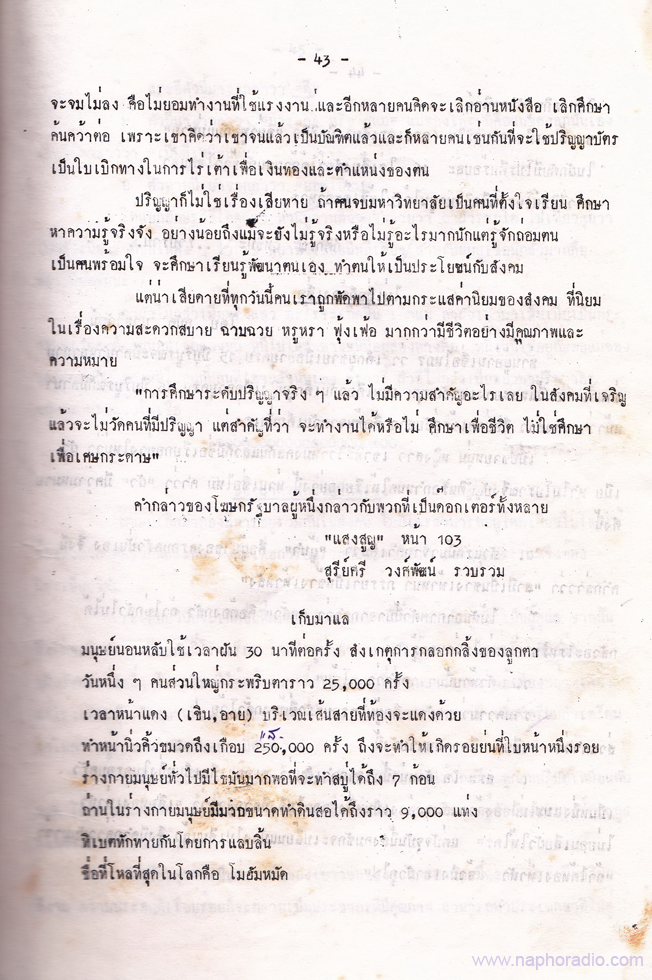 - 43 -
จะจมไม่ลง คือไม่ยอมทำงานที่ใช้แรงงาน และอีกหลายคนคิดจะเลิกอ่านหนังสือ เลิกศึกษา
ค้นคว้าต่อ เพราะเขาคิดว่าเขาจนแล้วเป็นบัณฑิตแล้วและก็หลายคนเช่นกันที่จะใช้ปริญญาบัตร
เป็นใบเบิกทางในการไร่เต้าเพื่อเงินทองและตำแหน่งของตน
ปริญญาก็ไม่ใช่เรื่องเสียหาย ถ้าคนจบมหาวิทยาลัยเป็นคนที่ตั้งใจเรียน ศึกษา
หาความรู้จริงจัง อย่างน้อยถึงแม้จะยังไม่รู้จริงหรือไม่รู้อะไรมากนักแต่รู้จักถ่อมตน
เป็นคนพร้อมใจ จะศึกษาเรียนรู้พัฒนาตนเอง ทำตนให้เป็นประโยชน์กับสังคม
แต่น่าเสียดายที่ทุกวันนี้คนเราถูกพัดพาไปตามกระแสค่านิยมของสังคม ที่นิยม
ในเรื่องความสะดวกสบาย ฉาบฉวย หรูหรา ฟุ้งเฟ้อ มากกว่ามีชีวิตอย่างมีคุณภาพและ
ความหมาย
"การศึกษาระดับปริญญาจริง ๆ แล้ว ไม่มีความสำคัญอะไรเลย ในสังคมที่เจริญ
แล้วจะไม่วัดคนที่มีปริญญา แต่สำคัญที่ว่า จะทำงานได้หรือไม่ ศึกษาเพื่อชีวิต ไม่ใช่ศึกษา
เพื่อเศษกระดาษ"
คำกล่าวของโฆษกรัฐบาลผู้หนึ่งกล่าวกับพวกที่เป็นด๊อกเตอร์ทั้งหลาย
"แสงสูญ" หน้า 103
สุรีย์ศรี วงศ์พัฒน์ รวบรวม
เก็บมาแล
มนุษย์นอนหลับใช้เวลาฝัน 30 นาทีต่อครั้ง สังเกตุการกลอกกลิ้งของลูกตา
วันหนึ่ง ๆ คนส่วนใหญ่กระพริบตาราว 25,000 ครั้ง
เวลาหน้าแดง (เขิน,อาย) บริเวณเส้นสายที่ท้องจะแดงด้วย
ทำหน้านิ่วคิ้วขมวดถึงเกือบ 250,000 ครั้ง ถึงจะทำให้เกิดรอยย่นที่ใบหน้าหนึ่งรอย
ร่างกายมนุษย์ทั่วไปมีไขมันมากพอที่จะทำสบู่ได้ถึง 7 ก้อน
ถ่านในร่างกายมนุษย์มีมากขนาดทำดินสอได้ถึงราว 9,000 แท่ง
ทิเบตทักทายกันโดยการแลบลิ้น
ชื่อที่โหลที่สุดในโลกคือ โมฮัมหมัด
www.naphoradio.com